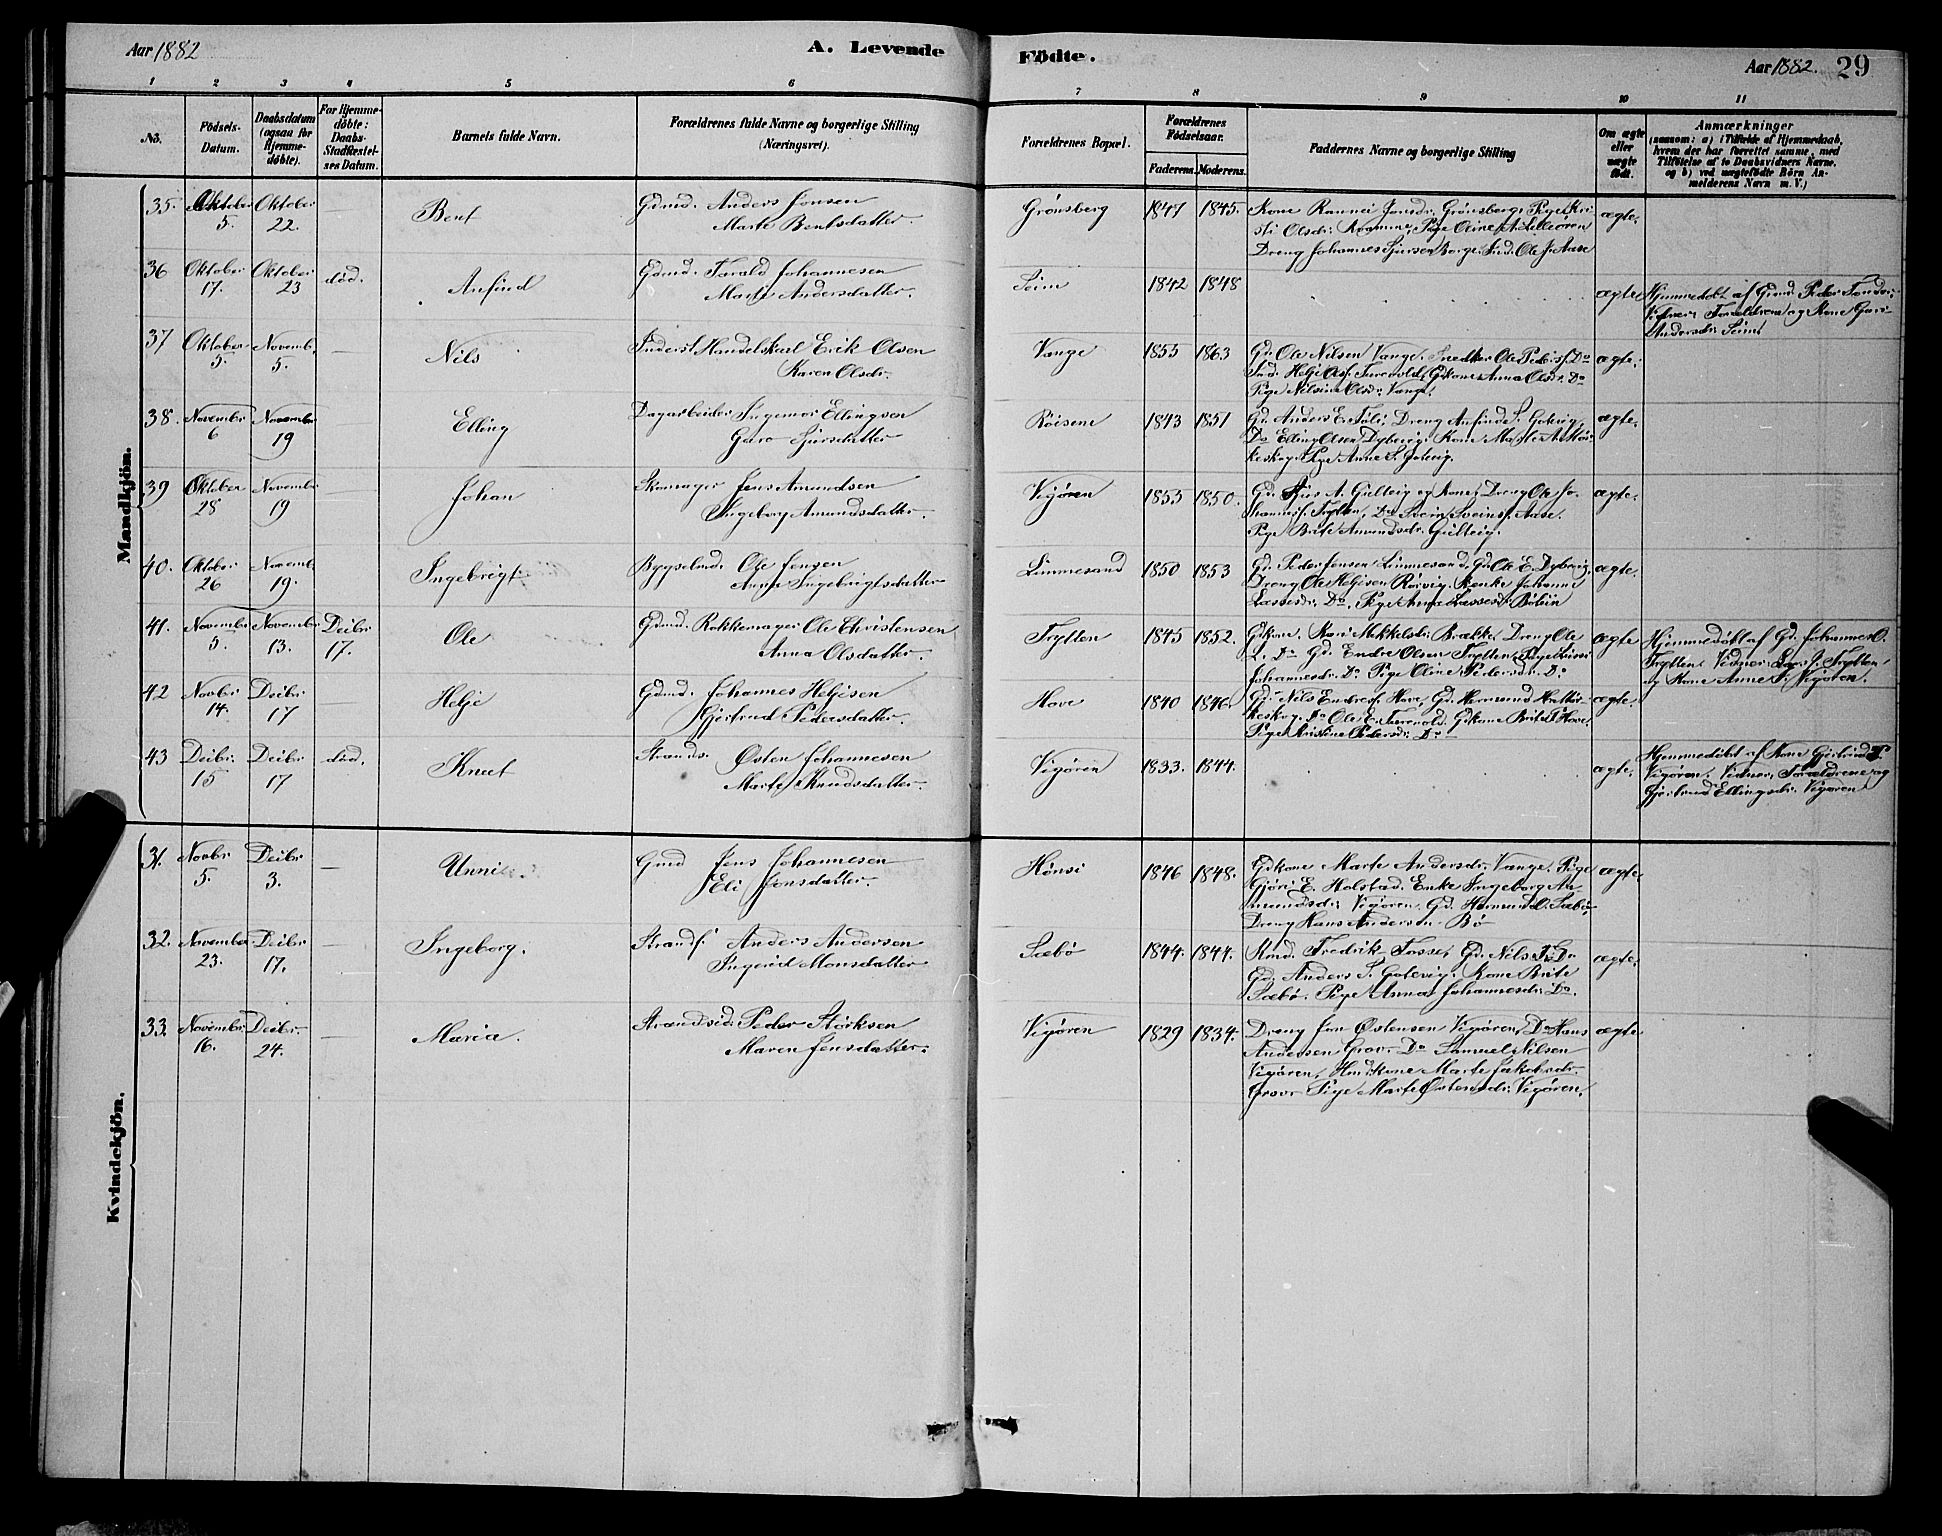 Aar 1882
A. Levende
Fødte.
Aar 1882.
29
1 2 3 4 5 6
7 8 9 10 11
No.
Fødsels-Datum.
Daabsdatum (ogsaa for Hjemme-døbte).
For Hjemme-døbte: Daabs-Stadfæstel-ses Datum.
Barnets fulde Navn.
Forældrenes fulde Navne og borgerlige Stilling (Næringsvei).
Forældrenes Bopæl.
Forældrenes Fødselsaar.
Faderens. Moderens.
Faddernes Navne og borgerlige Stilling
Om ægte eller uægte født.
Anmærkninger
(saasom: a) i Tilfælde af Hjemmedaab,
hvem der har forrettet samme, med
Tilføielse af to Daabsvidners Navne,
og b) ved uægtefødte Børn An-
melderens Navn m. V.)
Mandkjön.
35. Oktober 5. Oktober 22. — Bent
Gdmd. Anders Jonsen
Marte Bentsdatter.
Grønsberg 1847 1845.
Kone Rannei Jonsdr. Grønsberg, Pige Kri-
sti Olsdr. Kvamme, Pige Oline A. Lilleøren
Dreng Johannes Sjursen Borge. Ind. Ole J. Aase
ægte.
36 Oktober 17. Oktober 23 død. Anfind
Gdmd. Torald Johannesen
Marte Andersdatter.
Seim 1842 1848
ægte
Hjemmedøbt af Gmd. Peder
Vidner: Forældrene og Kone Guri
Andersdr. Seim
37 Oktober 5. Novemb. 5. — Nils
Inderst Handelskarl Erik Olsen
Karen Olsdr.
Vange 1855 1863
Gd. Ole Nilsen Vange. Snedker Ole Peders. Do
Ind. Helje Turevold, Gdkone Anna Olsdr. Do
Pige Nilsine Olsdr. Vange.
ægte.
38. Novembr 6 November 19 — Elling
Dagarbeider Ingemar Ellingsen
Guro Sjursdatter
Röisene 1843 1851
Gd. Anders E. Dreng Anfind S. Gotevig,
Do Elling Olsen Dybevig. Kone
Pige Anne S. Gotevig.
ægte.
39 Oktober 28 Novembr 19 — Johan
Skomager Jens Amundsen
Ingeborg Amundsdatter.
Vigøren 1853 1850.
Gd. Sjus A. Gulteig og Kone, Dreng Ole Jo-
hannes. Trytten, Do Svein Sveins. Aase.
Pige Brite Amundsdr. Gulteig.
ægte.
40. Oktober 26 Novemb. 19. — Ingebrigt
Bygselmd. Ole Jensen
Anna Ingebrigtsdatter
Linmesand 1850 1853
Gd. Peder Jensen Linmesand, Gd. Ole E. Dybevig.
Dreng Ole Helgesen Rørvig, Enke Johanne
Lassesdr. Do. Pige Anna Lassesdr.
ægte.
41. Novembr 5. November 13. Decbr 17. Ole
Gdmd. Rokkemager Ole Christensen
Anna Olsdatter.
Trytten 1845 1852.
Gdkone. Kari Mikkelsdr. Brække, Dreng Ole
L. Do Gd. Endre Olsen Trytten, Pige
Johannesdr. Do Pige Oline Pedersdr. Do
ægte
Hjemmedøbt af Gd. Johannes O.
Trytten Vidner: Lars J. Trytten
og Kone Anne Vigøren.
42 Novbr 14. Decbr 17 — Helje
Gdmd. Johannes Heljesen
Gjertrud Pedersdatter.
Hove 1840 1846.
Gd. Nils Endres. Hove, Gd. Hermund
Do Ole E. Turevold. Gdkone Brite P. Hove
Pige Kristine Pedersdr. Do
ægte.
43 Decbr. 15 Decbr 17 død. Knut
Strands. Østen Johannesen
Marte Knudsdatter.
Vigøren 1833. 1844.
ægte.
Hjemmedøbt af Kone Gjertrud
Vigøren. Vidner: Forældrene og
Gjertrud Ellingsdr. Vigøren
Kvindekjön.
31. Novbr 5. Decbr 3. — Unni
Gmd Jens Johannesen
Eli Jonsdatter.
Hønsi 1846 1848.
Gdkone Marte Andersdr. Vange. Pige
Gjøri E. Holstad. Enke Ingeborg Am-
mundsdr. Vigøren. Gd. Hermund O. Sæbø,
Dreng Hans Andersen Bø
ægte
32. November 23. Decbr 17. — Ingeborg.
Strands. Anders Andersen
Ingerid Monsdatter
Sæbø 1844. 1844.
Hmd. Fredrik Fosse, Gd. Nils Do
Gd. Anders S. Gotevig. Kone Brite
Sæbø. Pige Anna Johannesdr. Do.
ægte.
33. Novembr 16. Decbr. 24. — Maria.
Strandsid. Peder Størksen
Maren Jensdatter.
Vigøren 1829 1834.
Dreng Jon Østensen Vigøren, Do Hans
Andersen Grov. Do Samuel Nilsen
Vigøren, Hmdkone Marte Jakobsdr.
Grov. Pige Marte Østensdr. Vigøren.
ægte